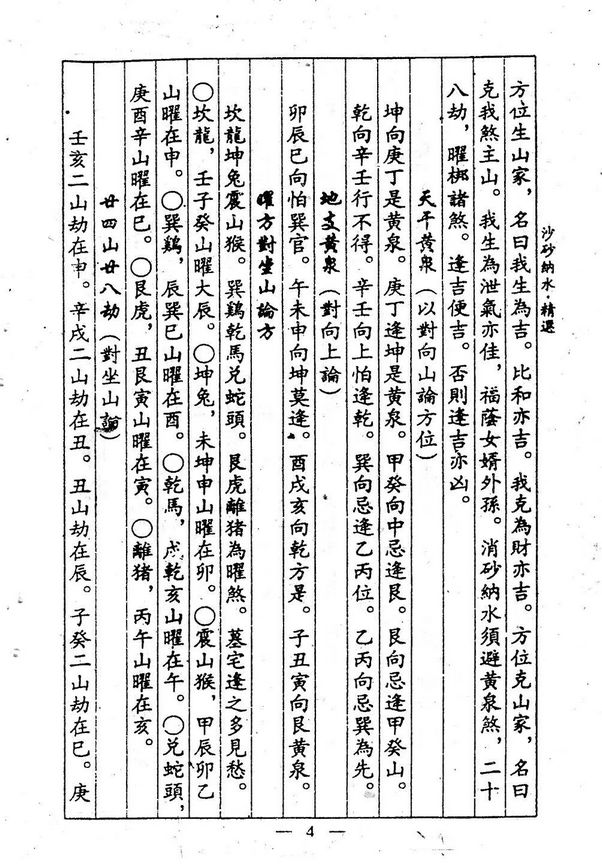 沙砂納水·精選
方位生山家，名曰我生為吉。比和亦吉。我克為財亦吉。方位克山家，名曰
克我煞主山。我生為泄氣亦佳，福蔭女婿外孫。消砂納水須避黃泉煞，二十
八劫，曜梆諸煞。逢吉便吉。否則逢吉亦凶。
天干黃泉（以對向山論方位）
坤向庚丁是黃泉。庚丁逢坤是黃泉。甲癸向中忌逢艮。艮向忌逢甲癸山。
乾向辛壬行不得。辛壬向上怕逢乾。巽向忌逢乙丙位。乙丙向忌巽為先。
地支黃泉（對向上論）
卯辰巳向怕巽宮。午未申向坤莫逢。酉戌亥向乾方是。子丑寅向艮黃泉。
曜方對坐山論方
坎龍坤兔震山猴。巽鷄乾馬兌蛇頭。艮虎離猪為曜煞。墓宅逢之多見愁。
○坎龍，壬子癸山曜大辰。○坤兔，未坤申山曜在卯。○震山猴，甲辰卯乙
山曜在申。○巽鷄，辰巽巳山曜在酉。○乾馬，戌乾亥山曜在午。○兌蛇頭，
庚酉辛山曜在巳。○艮虎，丑艮寅山曜在寅。○離猪，丙午山曜在亥。
廿四山廿八劫（對坐山論）
壬亥二山劫在申。辛戌二山劫在丑。丑山劫在辰。子癸二山劫在巳。庚
— 4 —